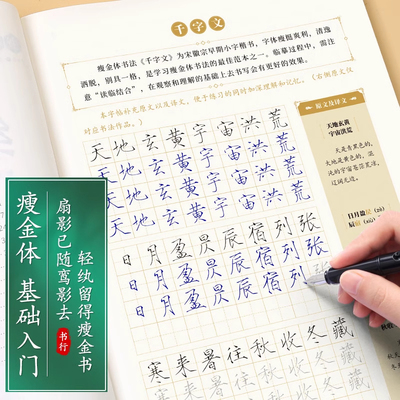 千字文
瘦金体书法《千字文》为宋徽宗早期小字楷书，字体瘦挺爽利，清逸
洒脱，别具一格，是学习瘦金体书法的最佳范本之一。临摹过程中，需注
意“读临结合”，在观察和理解的基础上去书写会有更好的效果。
本字帖补充原文以及译文，便于练习的同时加深理解和记忆。（右侧原文仅
对应书法作品。）
天地玄黄宇宙洪荒
天地玄黄宇宙洪荒
天地玄黄宇宙洪荒
天地玄黄宇宙洪荒
日月盈昃辰宿列张
日月盈昃辰宿列张
日月盈昃辰宿列
寒来暑往秋收冬藏
原文及译文
天地玄黄
宇宙洪荒
天是青黑色的，
大地是黄色的，
辽阔无边。
日月盈昃(zè)
瘦金体 基础入门
轻纨留得瘦金书
扇影已随鸾影去
书行